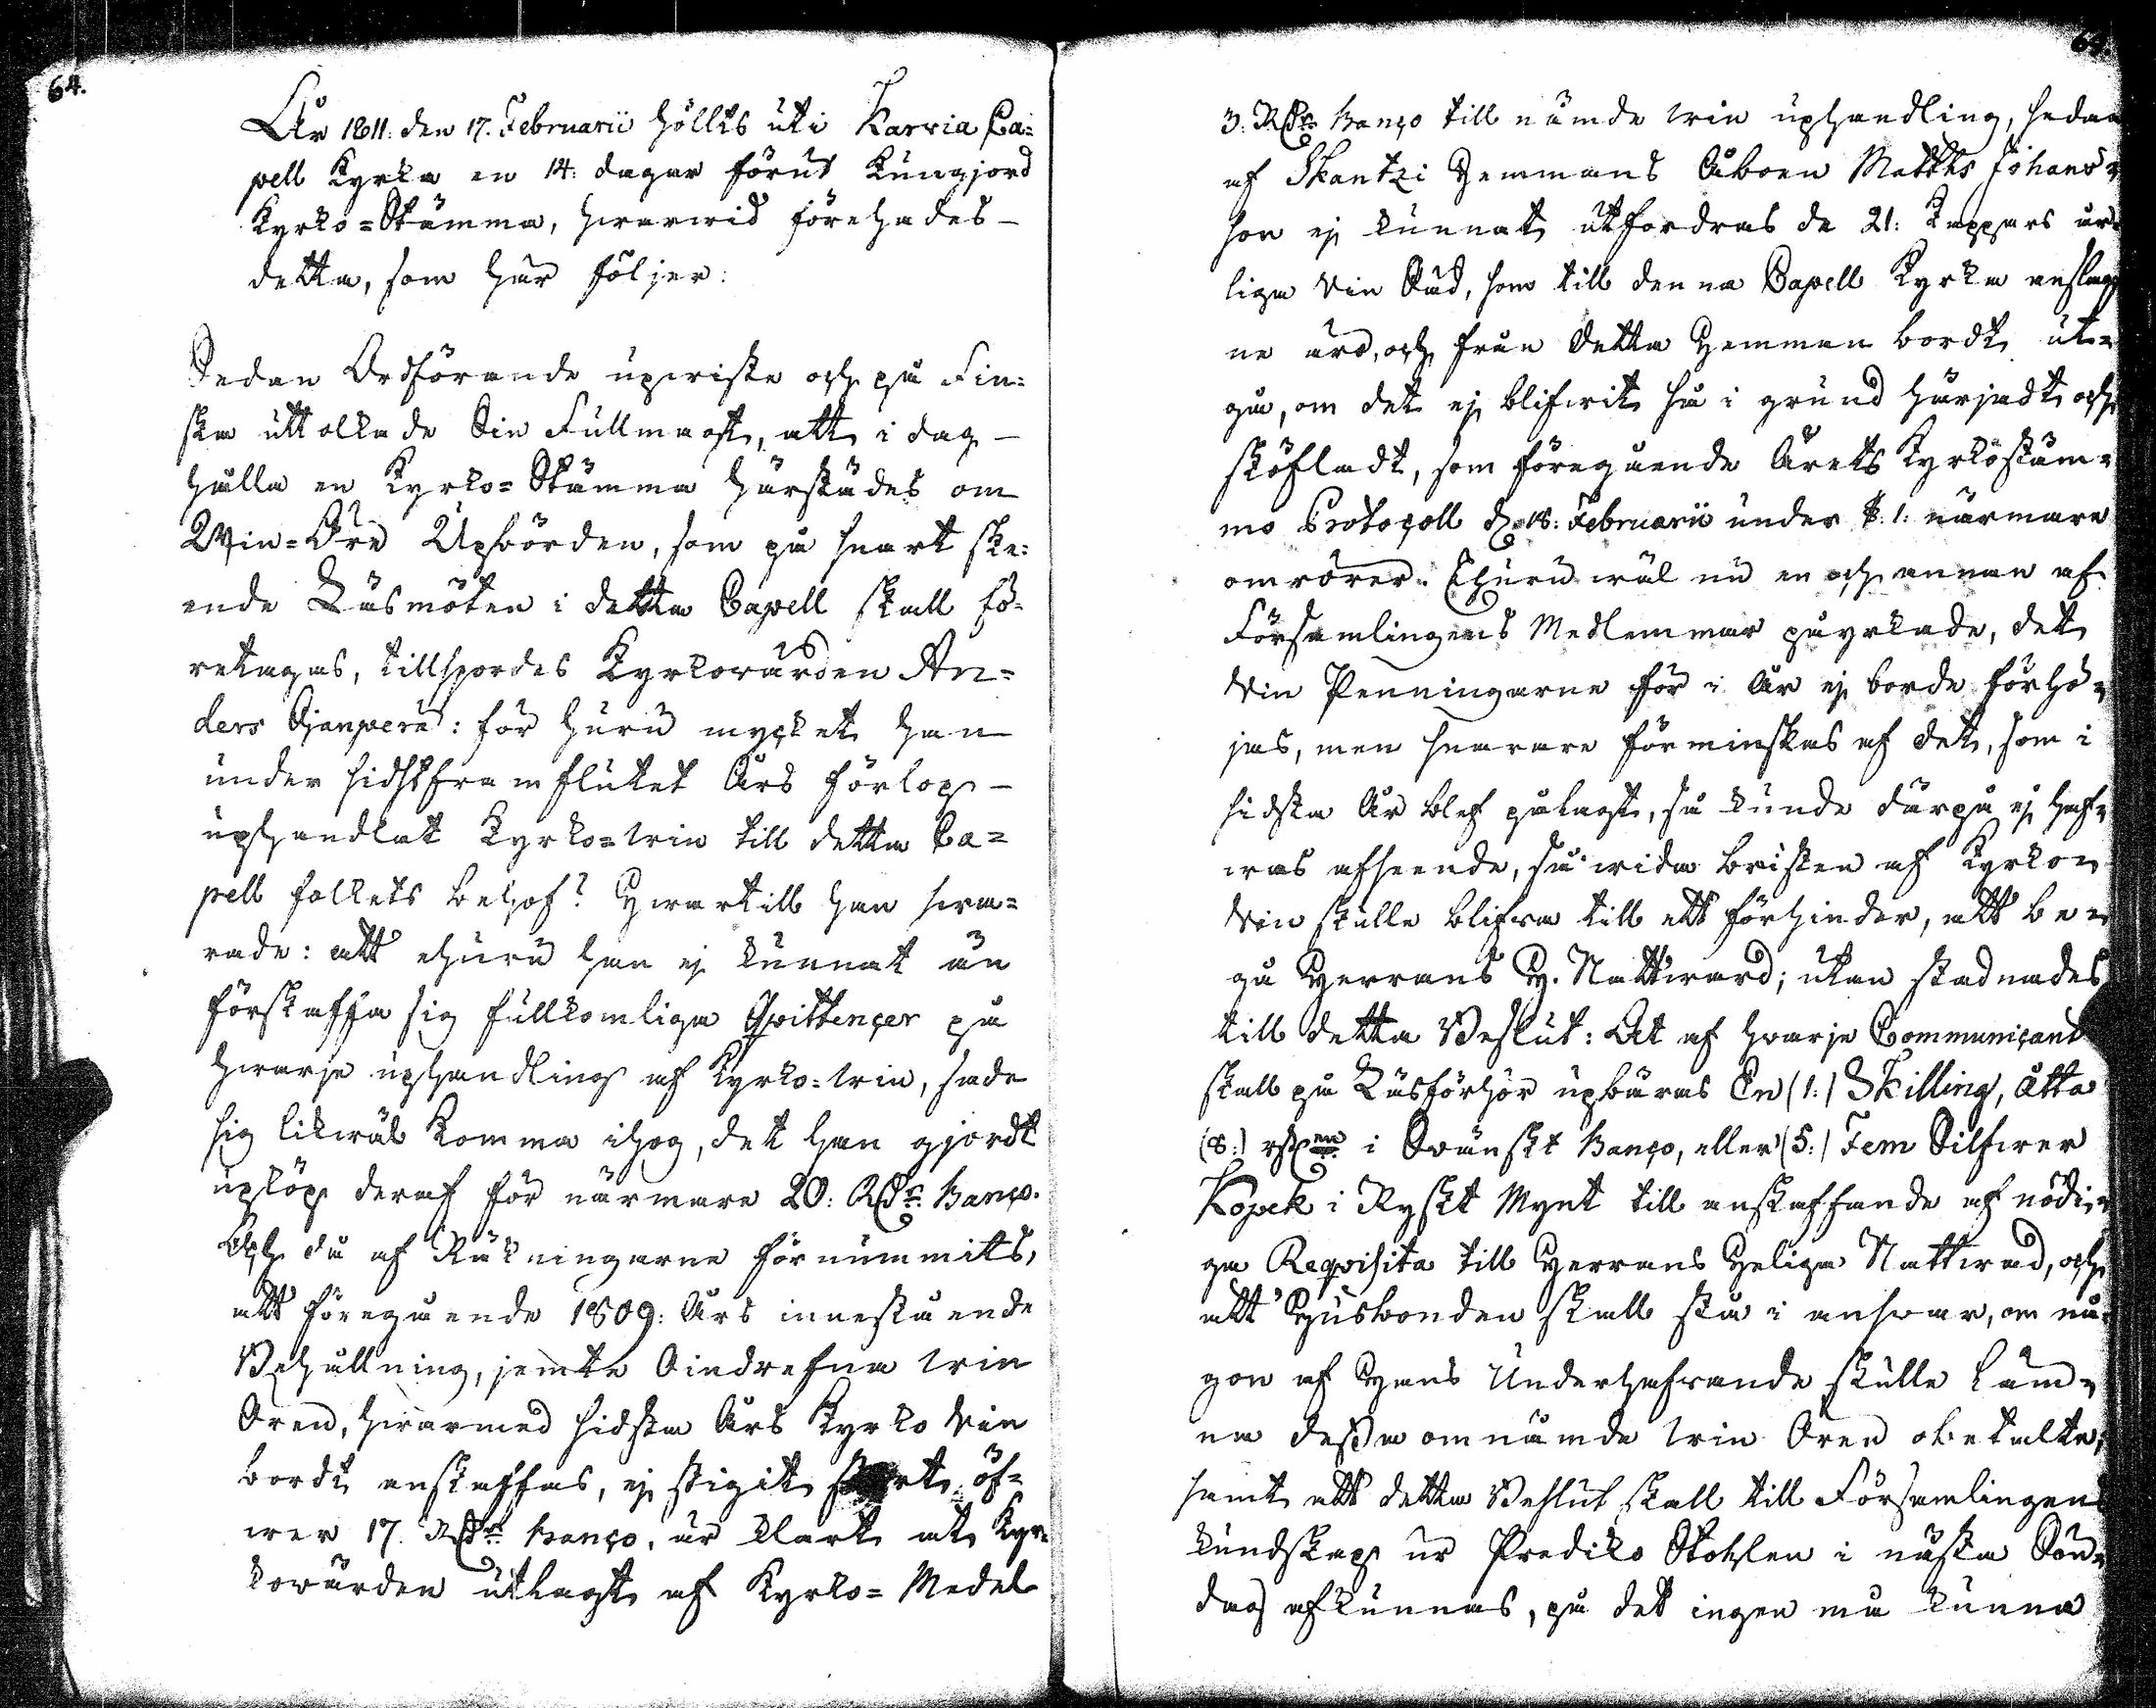 64.
År 1811: den 17. Februarii hölts uti Karvia Ca-
pell Kyrka en 14: dagar förut kungjord
Kyrko=Stämma, hwarwid förehades –
detta, som här följer:
Sedan Ordförande upwiste och på Fin-
ska uttolkade Sin Fullmagt, att i dag –
hålla en Kyrko=Stämma härstädes om
Win=Öre Upbörden, som på snart ske-
ende Läsmöten i detta Capell skall fö-
retagas, tillspordes Kyrkowärden An-
ders Ojanperä: för huru mycket han
under sidstframflutet Års förlop –
uphandlat Kyrko=win till detta Ca-
pell folkets behof? Hwartill han swa-
rade: att ehuru han ej kunnat än
förskaffa sig fullkomliga Qvittencer på
hwarje uphandling af Kyrko=win, sade
sig likwäl komma ihog, det han gjordt
upköp deraf för närmare 20: Rdr: Banco.
Och då af Räkningarne förnummits,
att föregående 1809: Års innestående
Behållning, jemte Oindrefna win
Ören, hwarmed sidsta Års Kyrko Vin
bordt anskaffas, ej stigit öf-
wer 17. Rdr Banco, är klart at Kyr-
kowärden utlagt af Kyrko= Medel
3: Rdr: Banco till nämde win uphandling, sedan
af Skantzi Hemmans Åboen Matths Johans-
son ej kunnat utfordras de 21: Kappars år-
liga Vin Säd, som till denna Capell Kyrka anslag-
ne äro, och från detta Hemman bordt ut-
gå, om det ej blifwit så i grund härjadt och
sköfladt, som föregående Årets Kyrkostäm-
mo Protocoll d. 18: Februarii under §: 1: närmare
omrörer. Ehuru wäl nu en och annan af
Församlingens Medlemmar påyrkade, det
Vin Penningarne för i År ej borde förhö-
jas, men snarare förminskas af det, som i
sidsta År blef pålagt, så kunde därpå ej haf-
was afseende, så wida bristen af Kyrkon
Vin skulle blifwa till ett förhinder, att be-
gå Herrans H. Nattward; utan stadnades
till detta Beslut: At af hvarje Communicant
skall på Läsförhör upbäras En (1:) Skilling, Åtta
(8:) rst:en i Svänskt Banco, eller (5:) Fem Silfwer
Kopek i Ryskt Mynt till anskaffande af nödi-
ga Requisita till Herrans Heliga Nattward, och
att Husbonden skall stå i answar, om nå-
gon af Hans Underhafvande skulle läm-
na dessa omnämde win Ören obetalte;
samt att detta Beslut skall till Församlingens
kundskap ur Prediko Stohlen i nästa Sön-
dag afkunnas, på det ingen må kunna